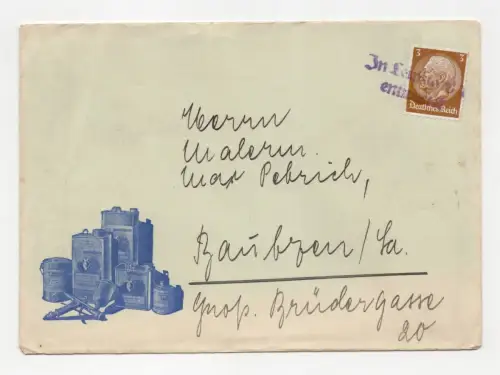 3 3
Deutsches Reich
In
Herrn
Malerm.
Max Petrich,
Bautzen/Sa.
Groß. Brüdergasse
20